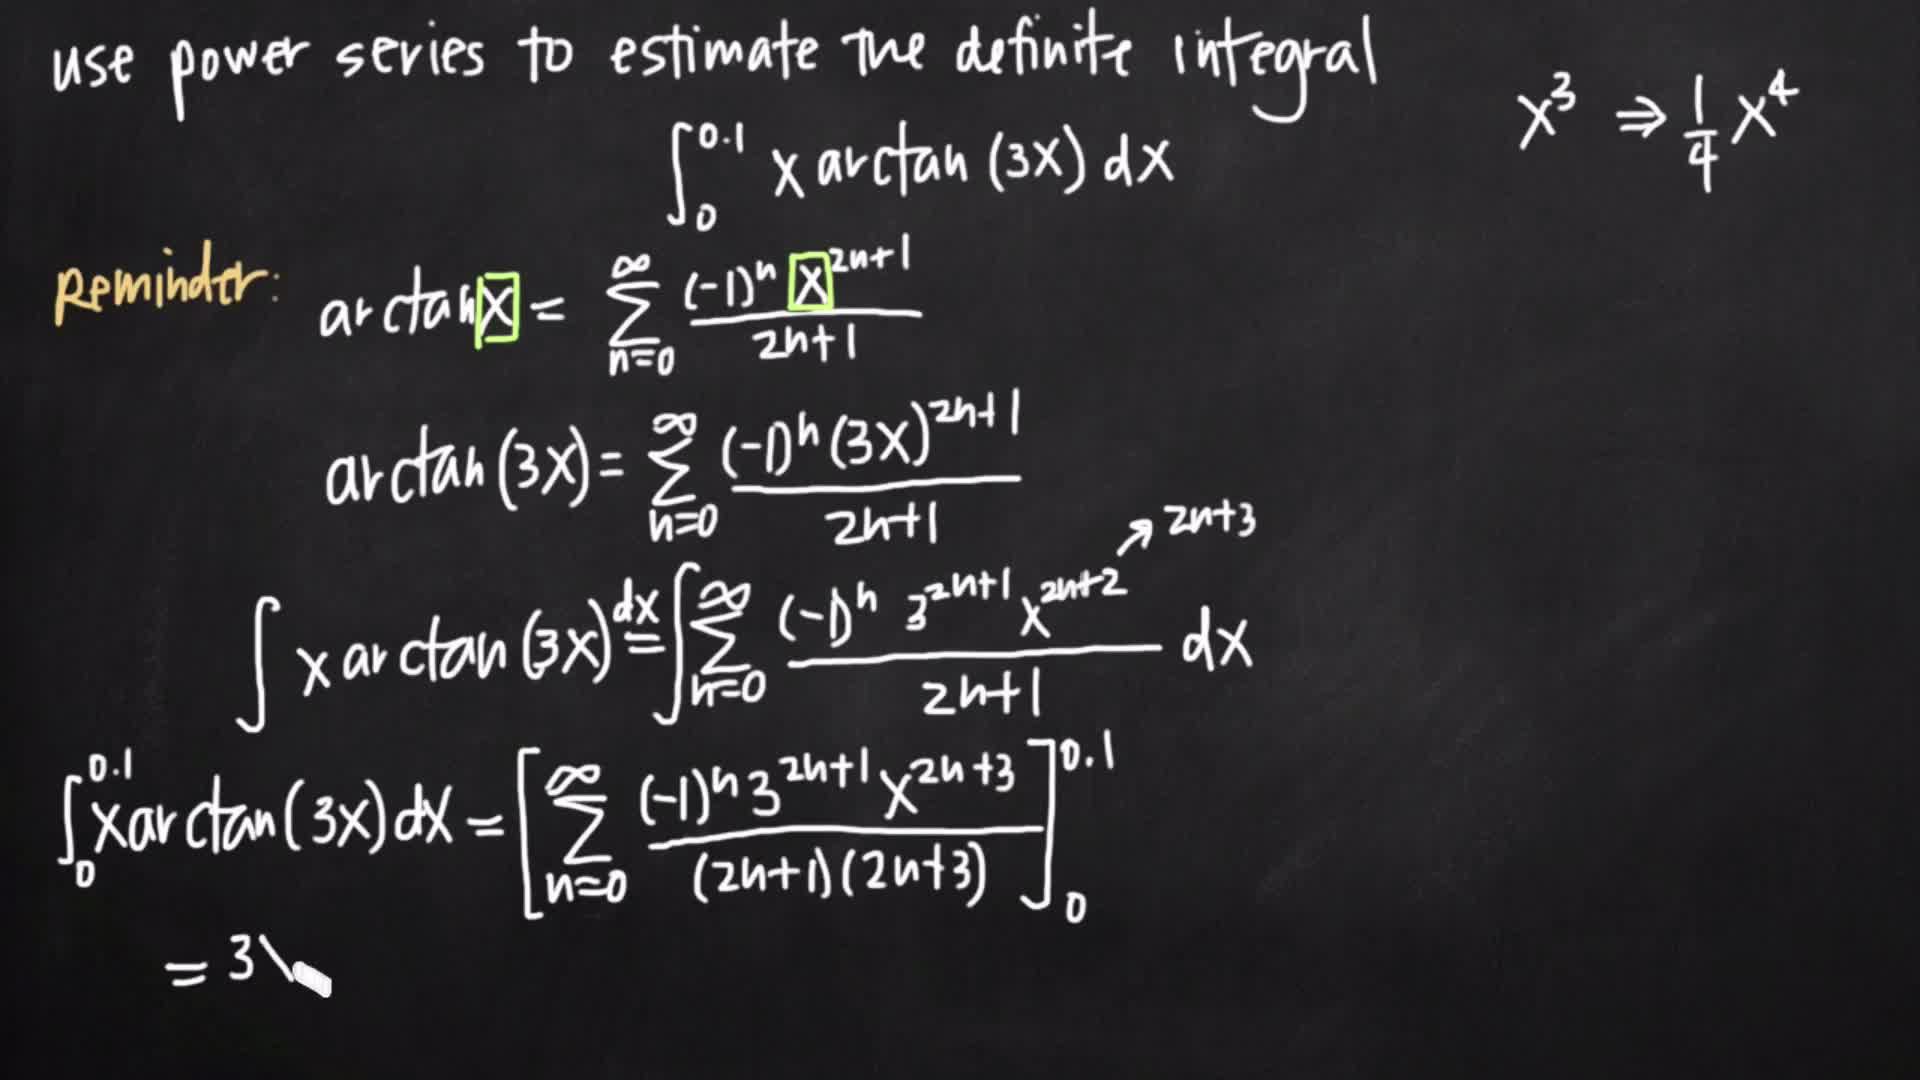 use power series to estimate the definite integral
x³ ⇒ 1/4 x⁴
∫₀^0.1 x arctan (3x) dx
Reminder: arctan x = ∑_{n=0}^∞ (-1)^n x^{2n+1} / 2n+1
arctan (3x) = ∑_{n=0}^∞ (-1)^n (3x)^{2n+1} / 2n+1
↗ 2n+3
∫ x arctan (3x) dx = ∫ ∑_{n=0}^∞ (-1)^n 3^{2n+1} x^{2n+2} / 2n+1 dx
∫₀^0.1 x arctan (3x) dx = [∑_{n=0}^∞ (-1)^n 3^{2n+1} x^{2n+3} / (2n+1)(2n+3)]₀^0.1
= 3\